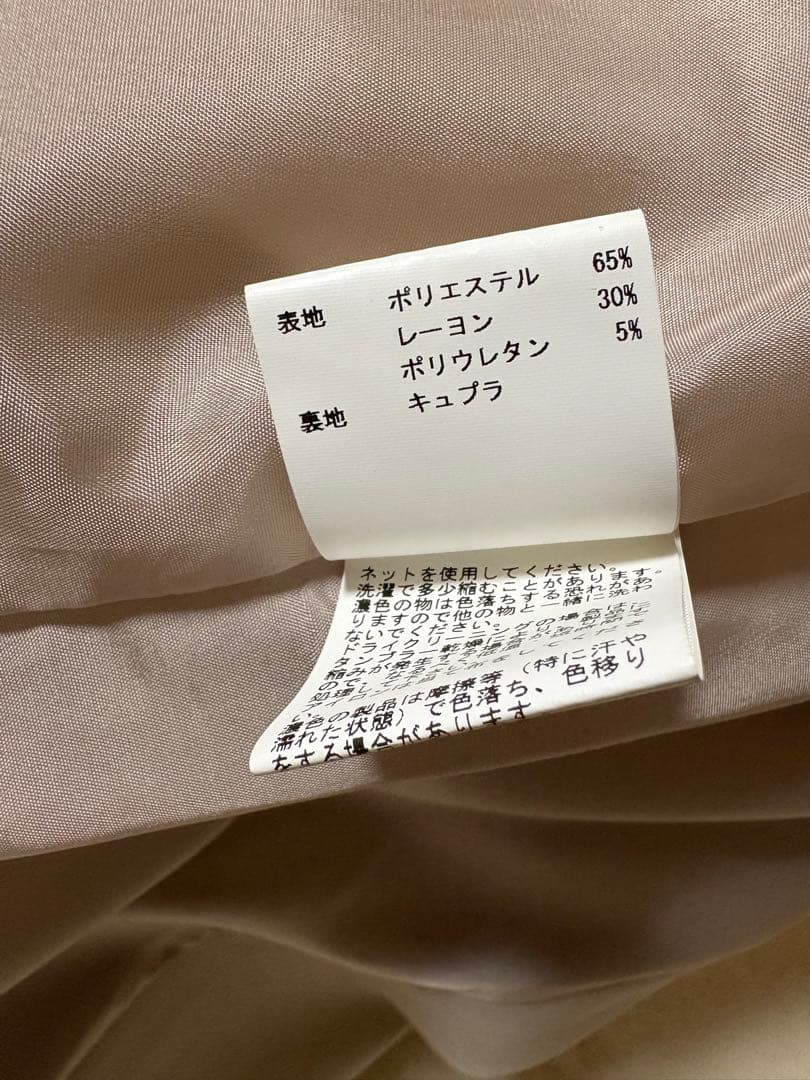 表地 ポリエステル 65%
レーヨン 30%
ポリウレタン 5%
裏地 キュプラ
ネットを使用してください。
洗濯で多少縮むことがあります。
濃色の物は色落ちする恐れがあ
りますので他の物と一緒に洗わ
ないでください。
ドライクリーニングの場合は
タンブラー乾燥により
縮みが発生する
ので、
処理して
濃色の製品は摩擦等（特に汗や
濡れた状態）で色落ち、色移り
をする場合があります